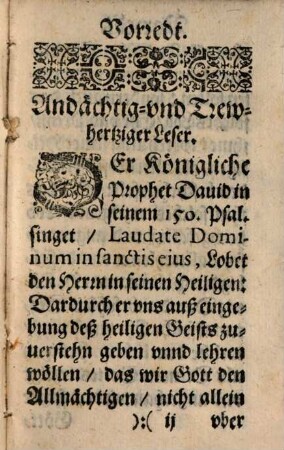 Vorredt.
Andächtig-vnd Trew-
hertziger Leser.
DEr Königliche
Prophet Dauid in
seinem 150. Psal.
singet / Laudate Domi-
num in sanctis eius, Lobet
den Herrn in seinen Heiligen:
Dardurch er vns auß einge-
bung deß heiligen Geists zu-
uerstehn geben vnnd lehren
wöllen / das wir Gott den
Allmächtigen / nicht allein
):( ij vber